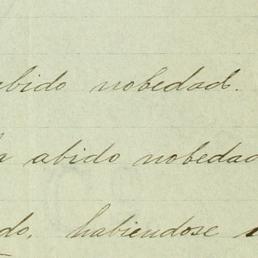 abido nobedad.
a abido nobedad
do, habiendose